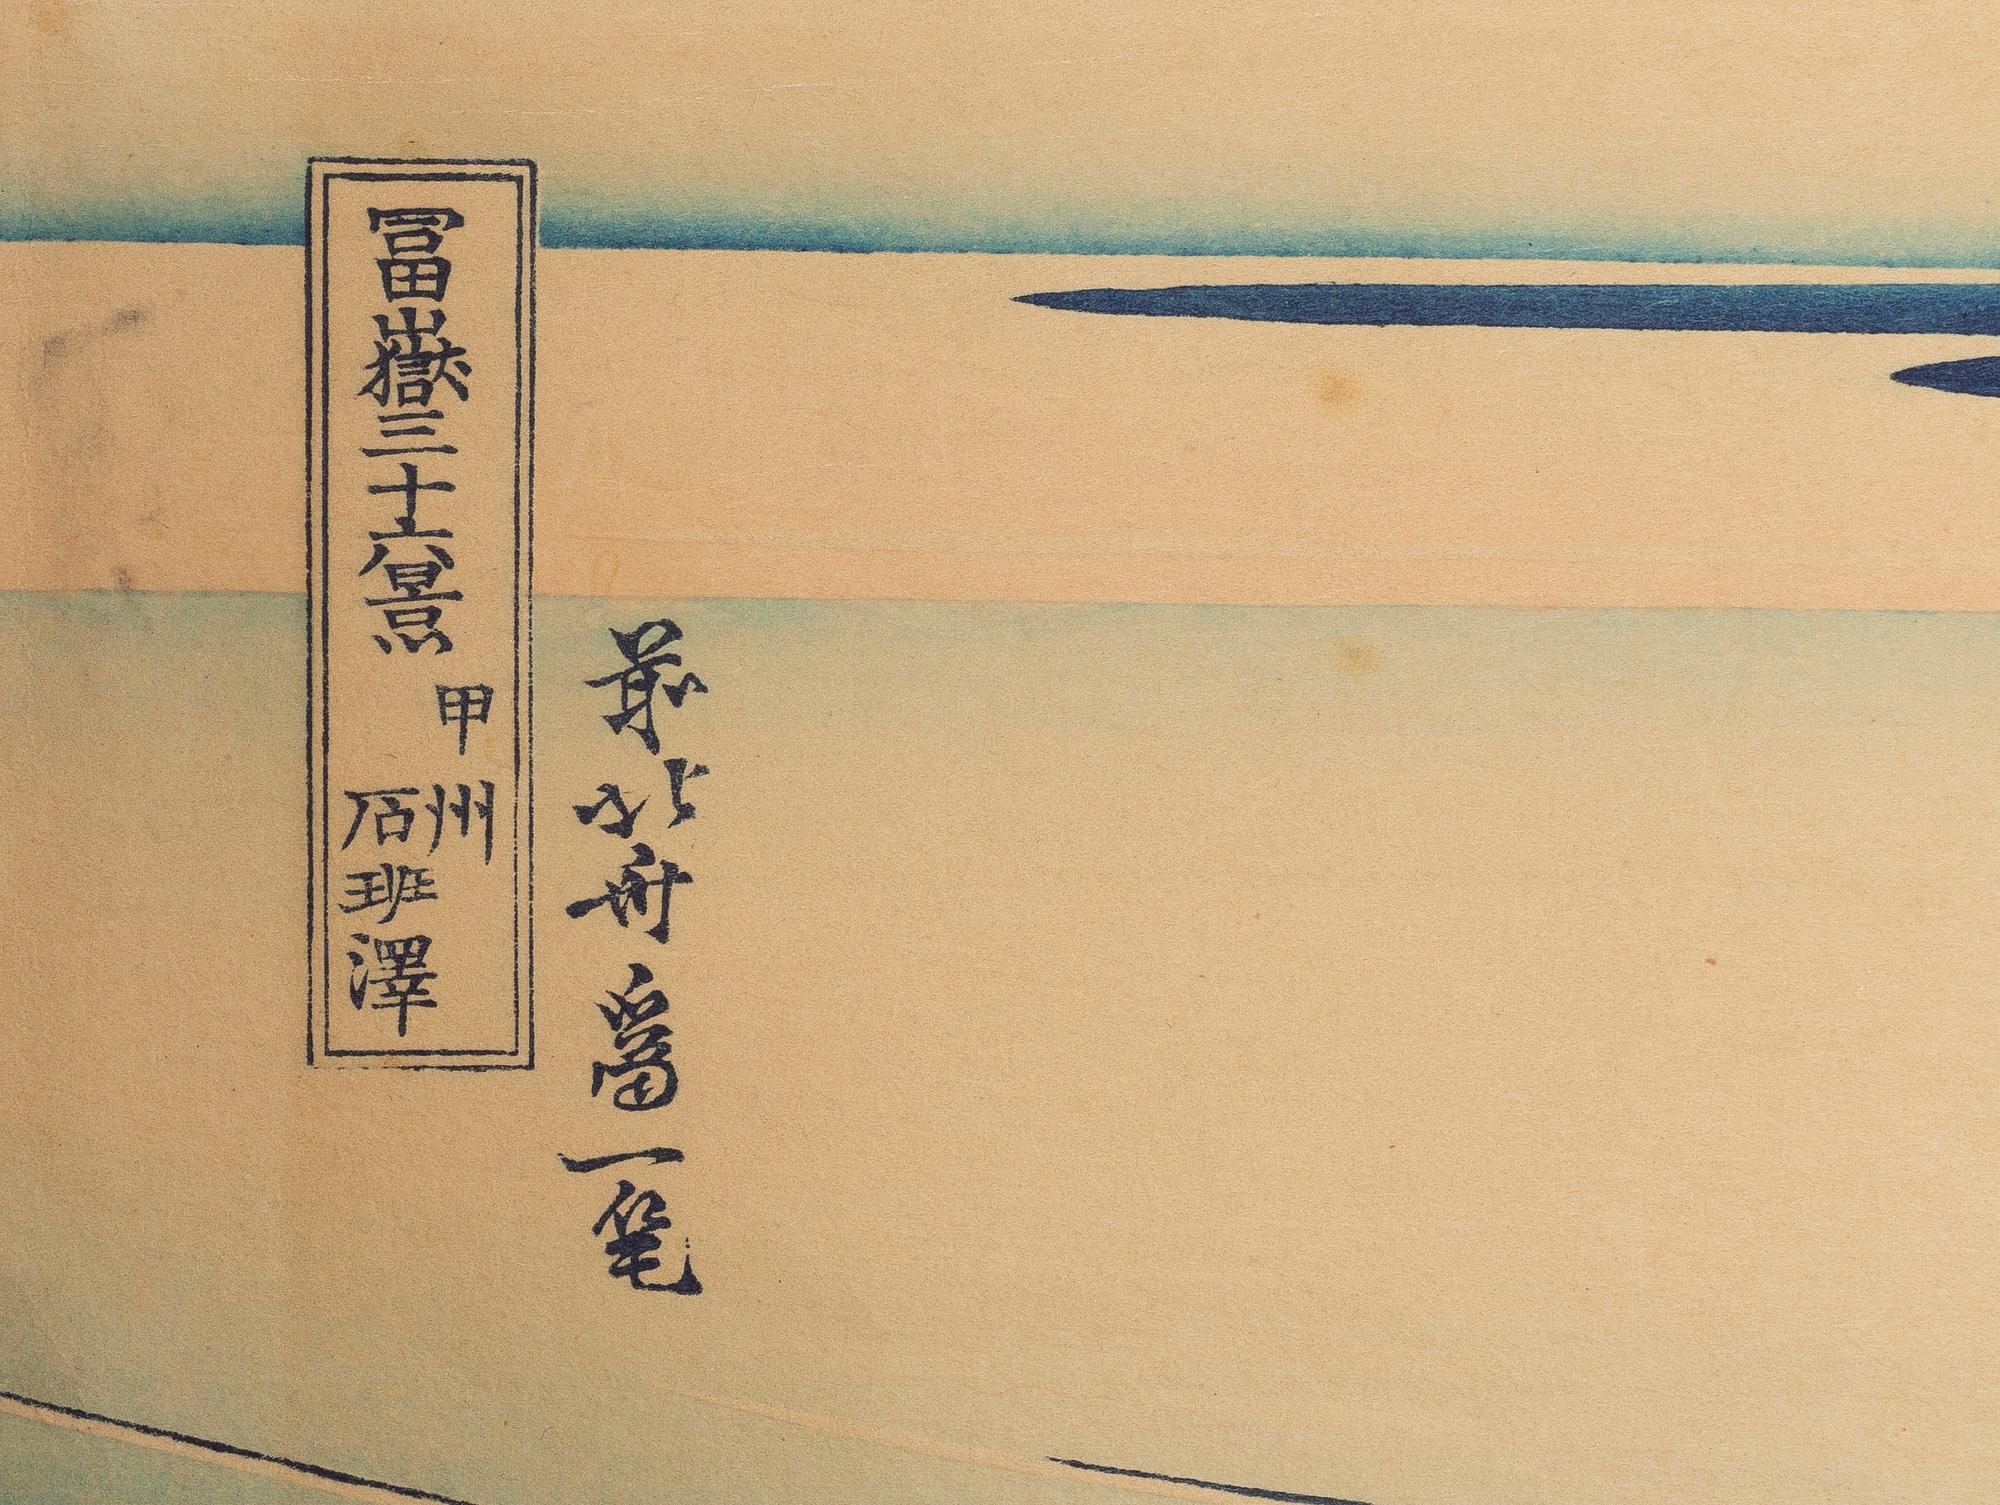 冨嶽三十六景
甲州
石班澤
前北斎為一笔